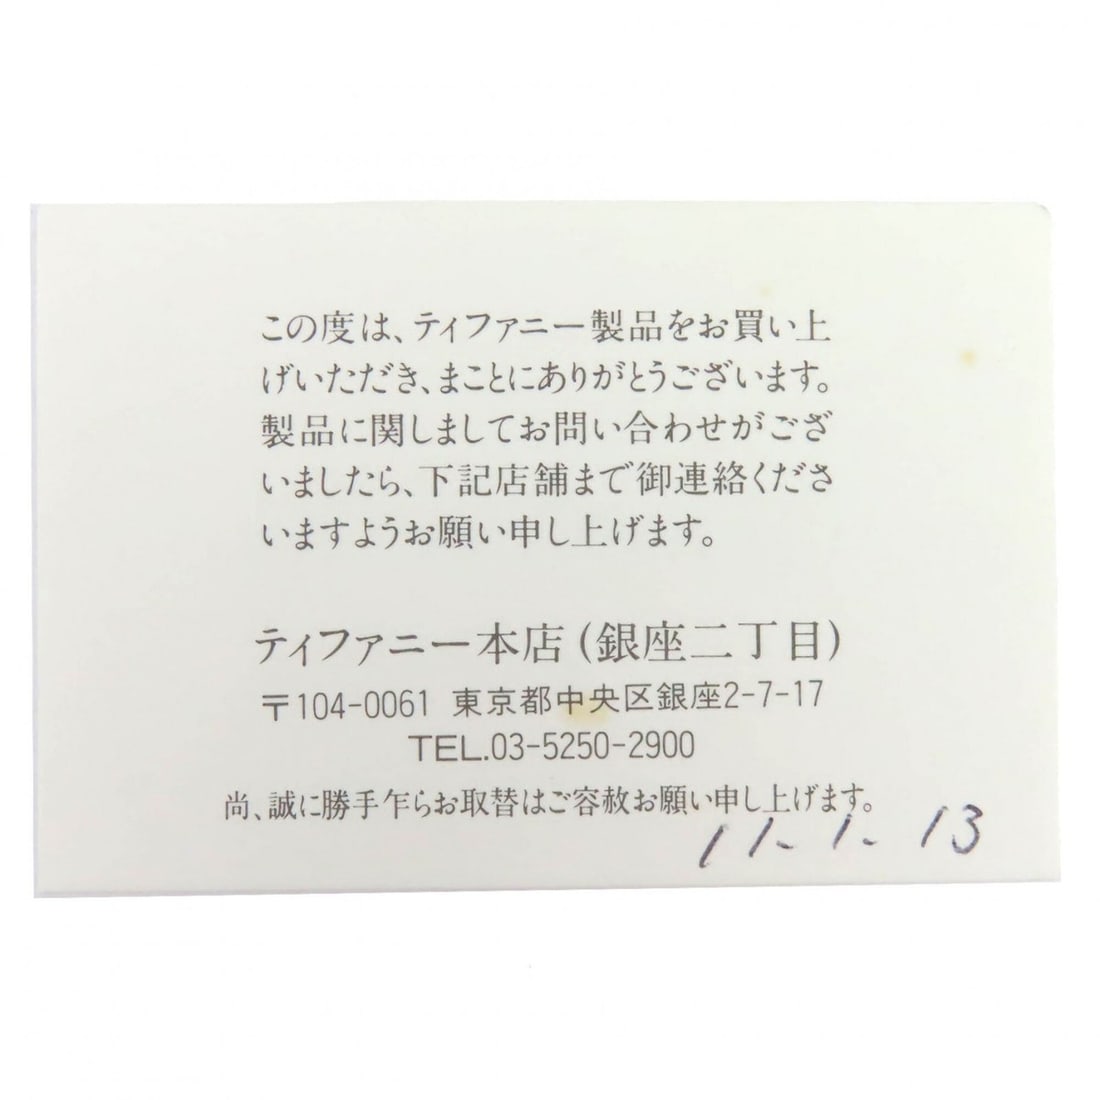 この度は、ティファニー製品をお買い上
げいただき、まことにありがとうございます。
製品に関しましてお問い合わせがござ
いましたら、下記店舗まで御連絡くださ
いますようお願い申し上げます。
ティファニー本店(銀座二丁目)
〒104-0061 東京都中央区銀座2-7-17
TEL.03-5250-2900
尚、誠に勝手乍らお取替はご容赦お願い申し上げます。
11. 1. 13